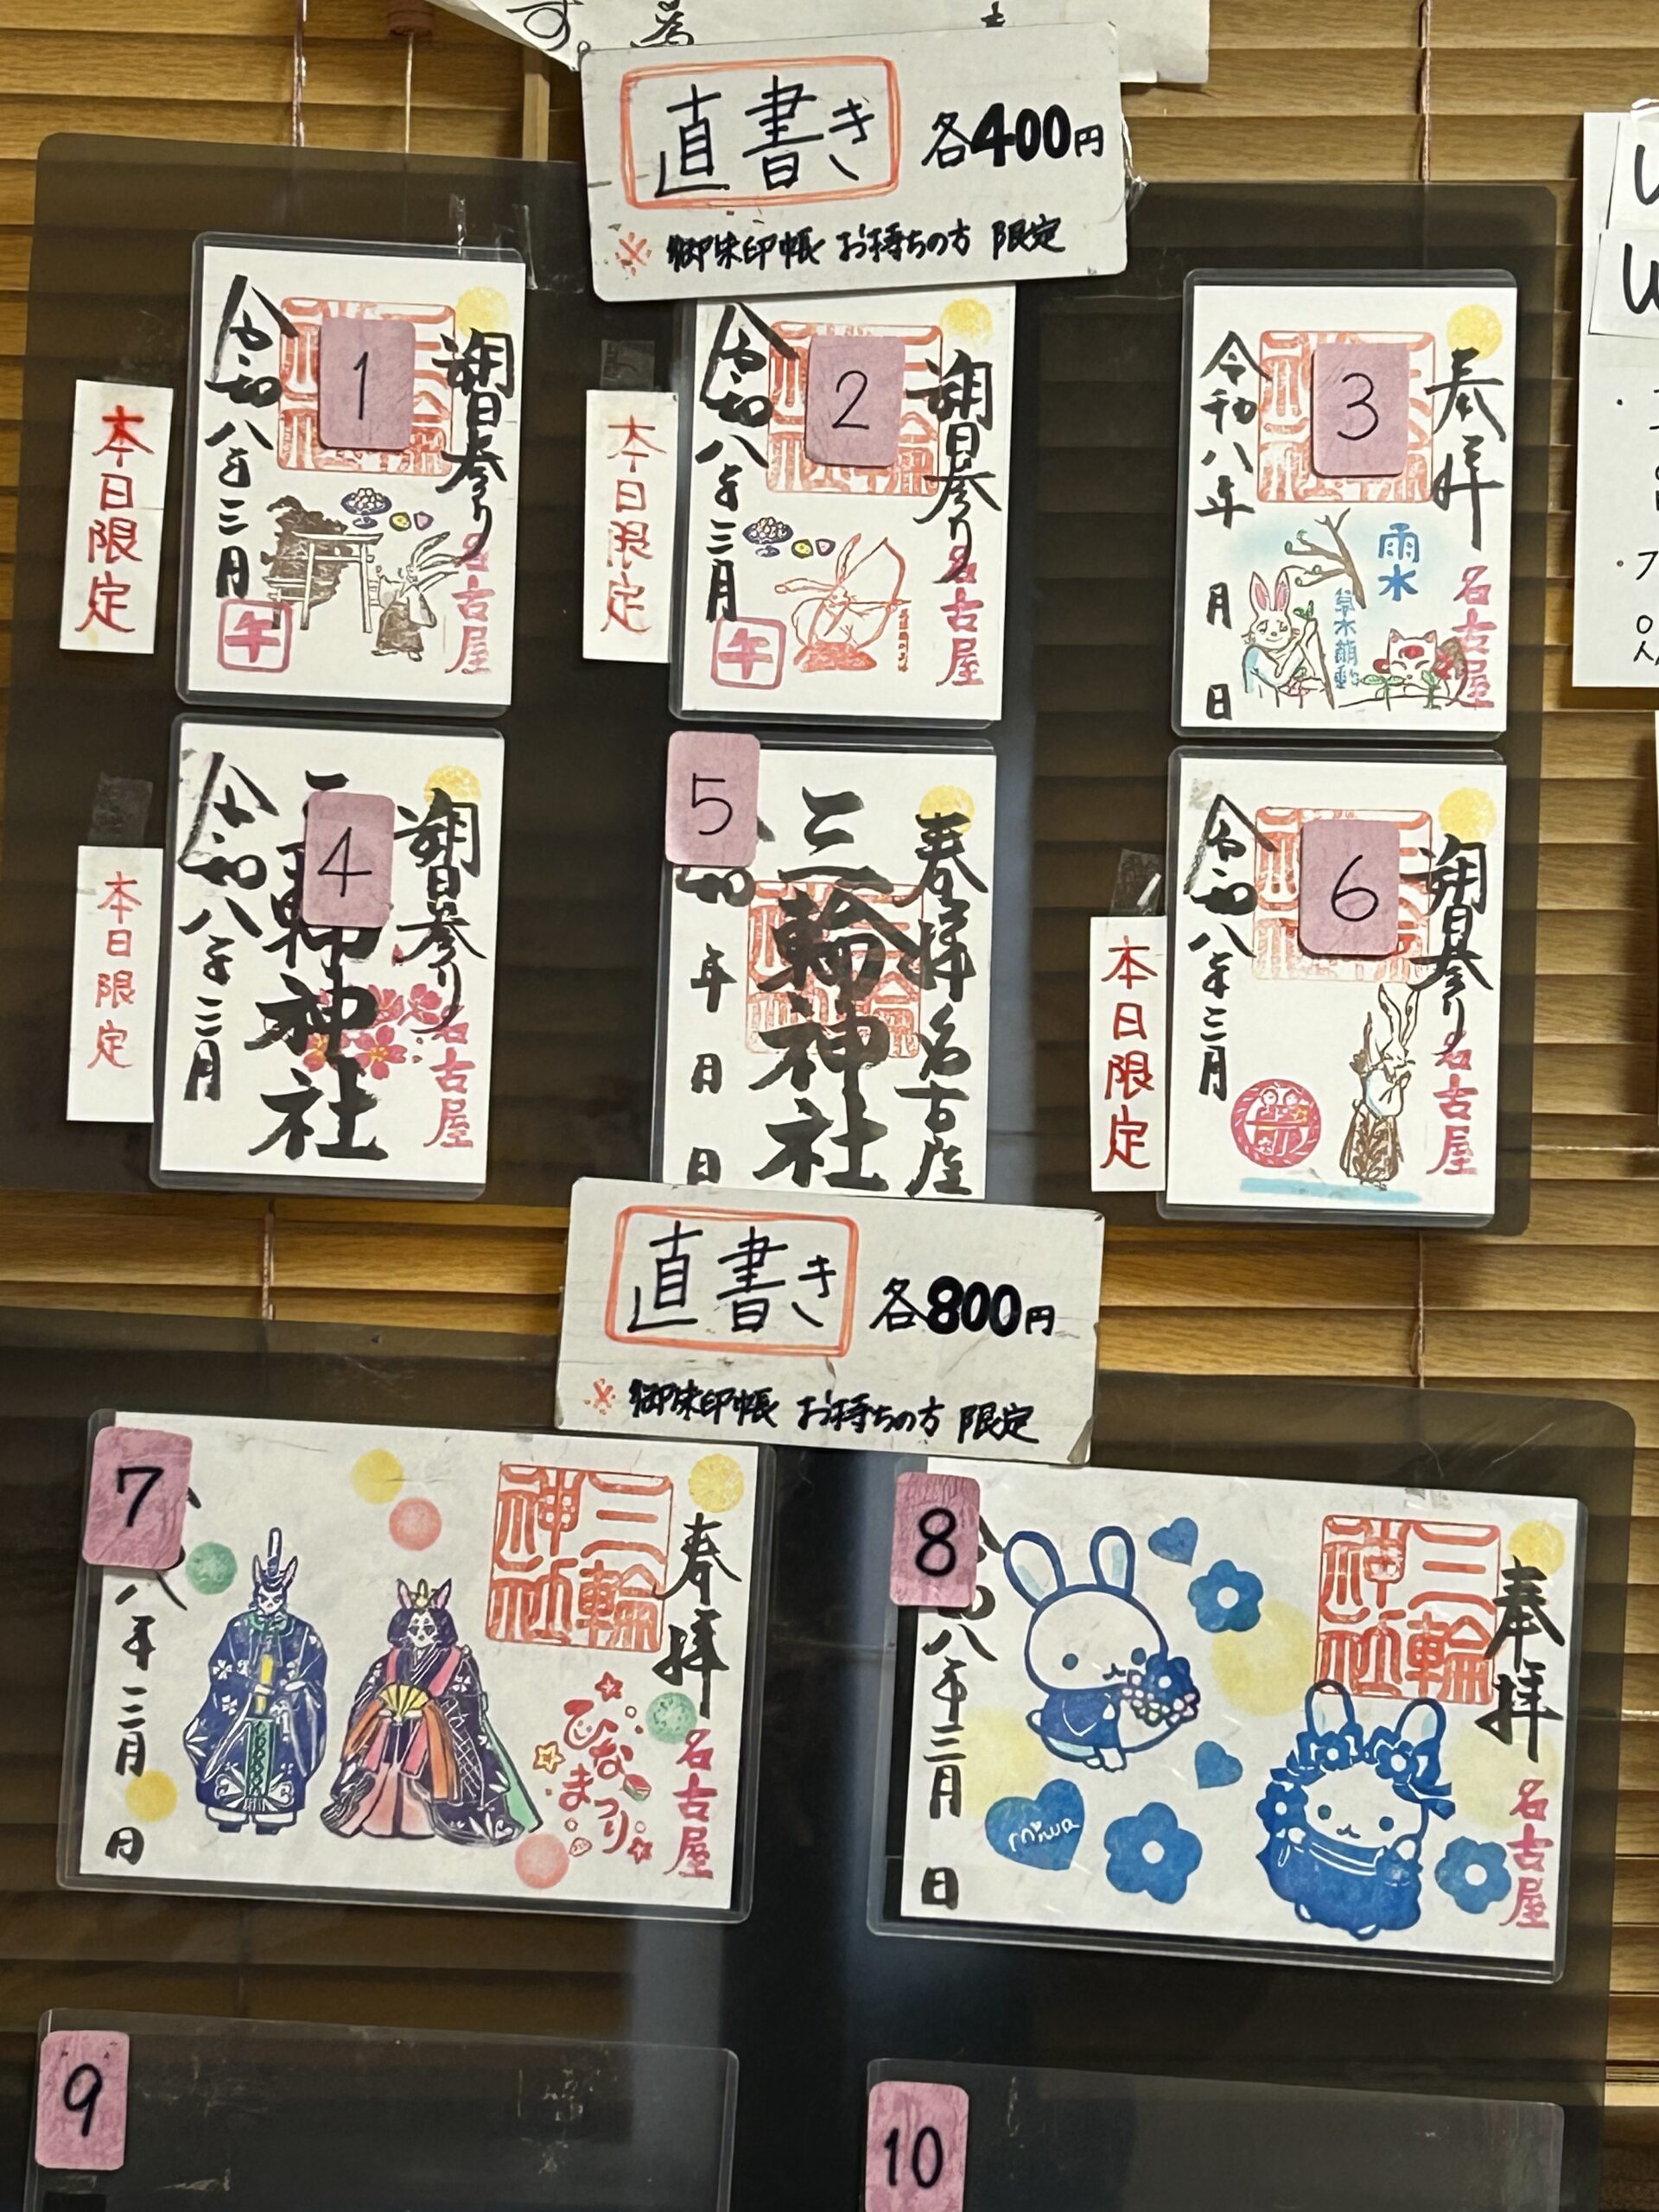 す。
直書き 各400円
※ 御朱印帳 お持ちの方 限定
本日限定
1
朔日参り
名古屋
令和八年三月
午
本日限定
2
朔日参り
名古屋
令和八年三月
午
3
奉拝
名古屋
雨水
草木萌動
令和八年
月
日
本日限定
4
朔日参り
名古屋
三輪神社
令和八年三月
5
奉拝 名古屋
三輪神社
年
月
日
本日限定
6
朔日参り
名古屋
令和八年三月
直書き 各800円
※ 御朱印帳 お持ちの方 限定
7
奉拝
名古屋
三輪神社
ひなまつり
八年三月
日
8
奉拝
名古屋
三輪神社
miwa
八年三月
日
9
10